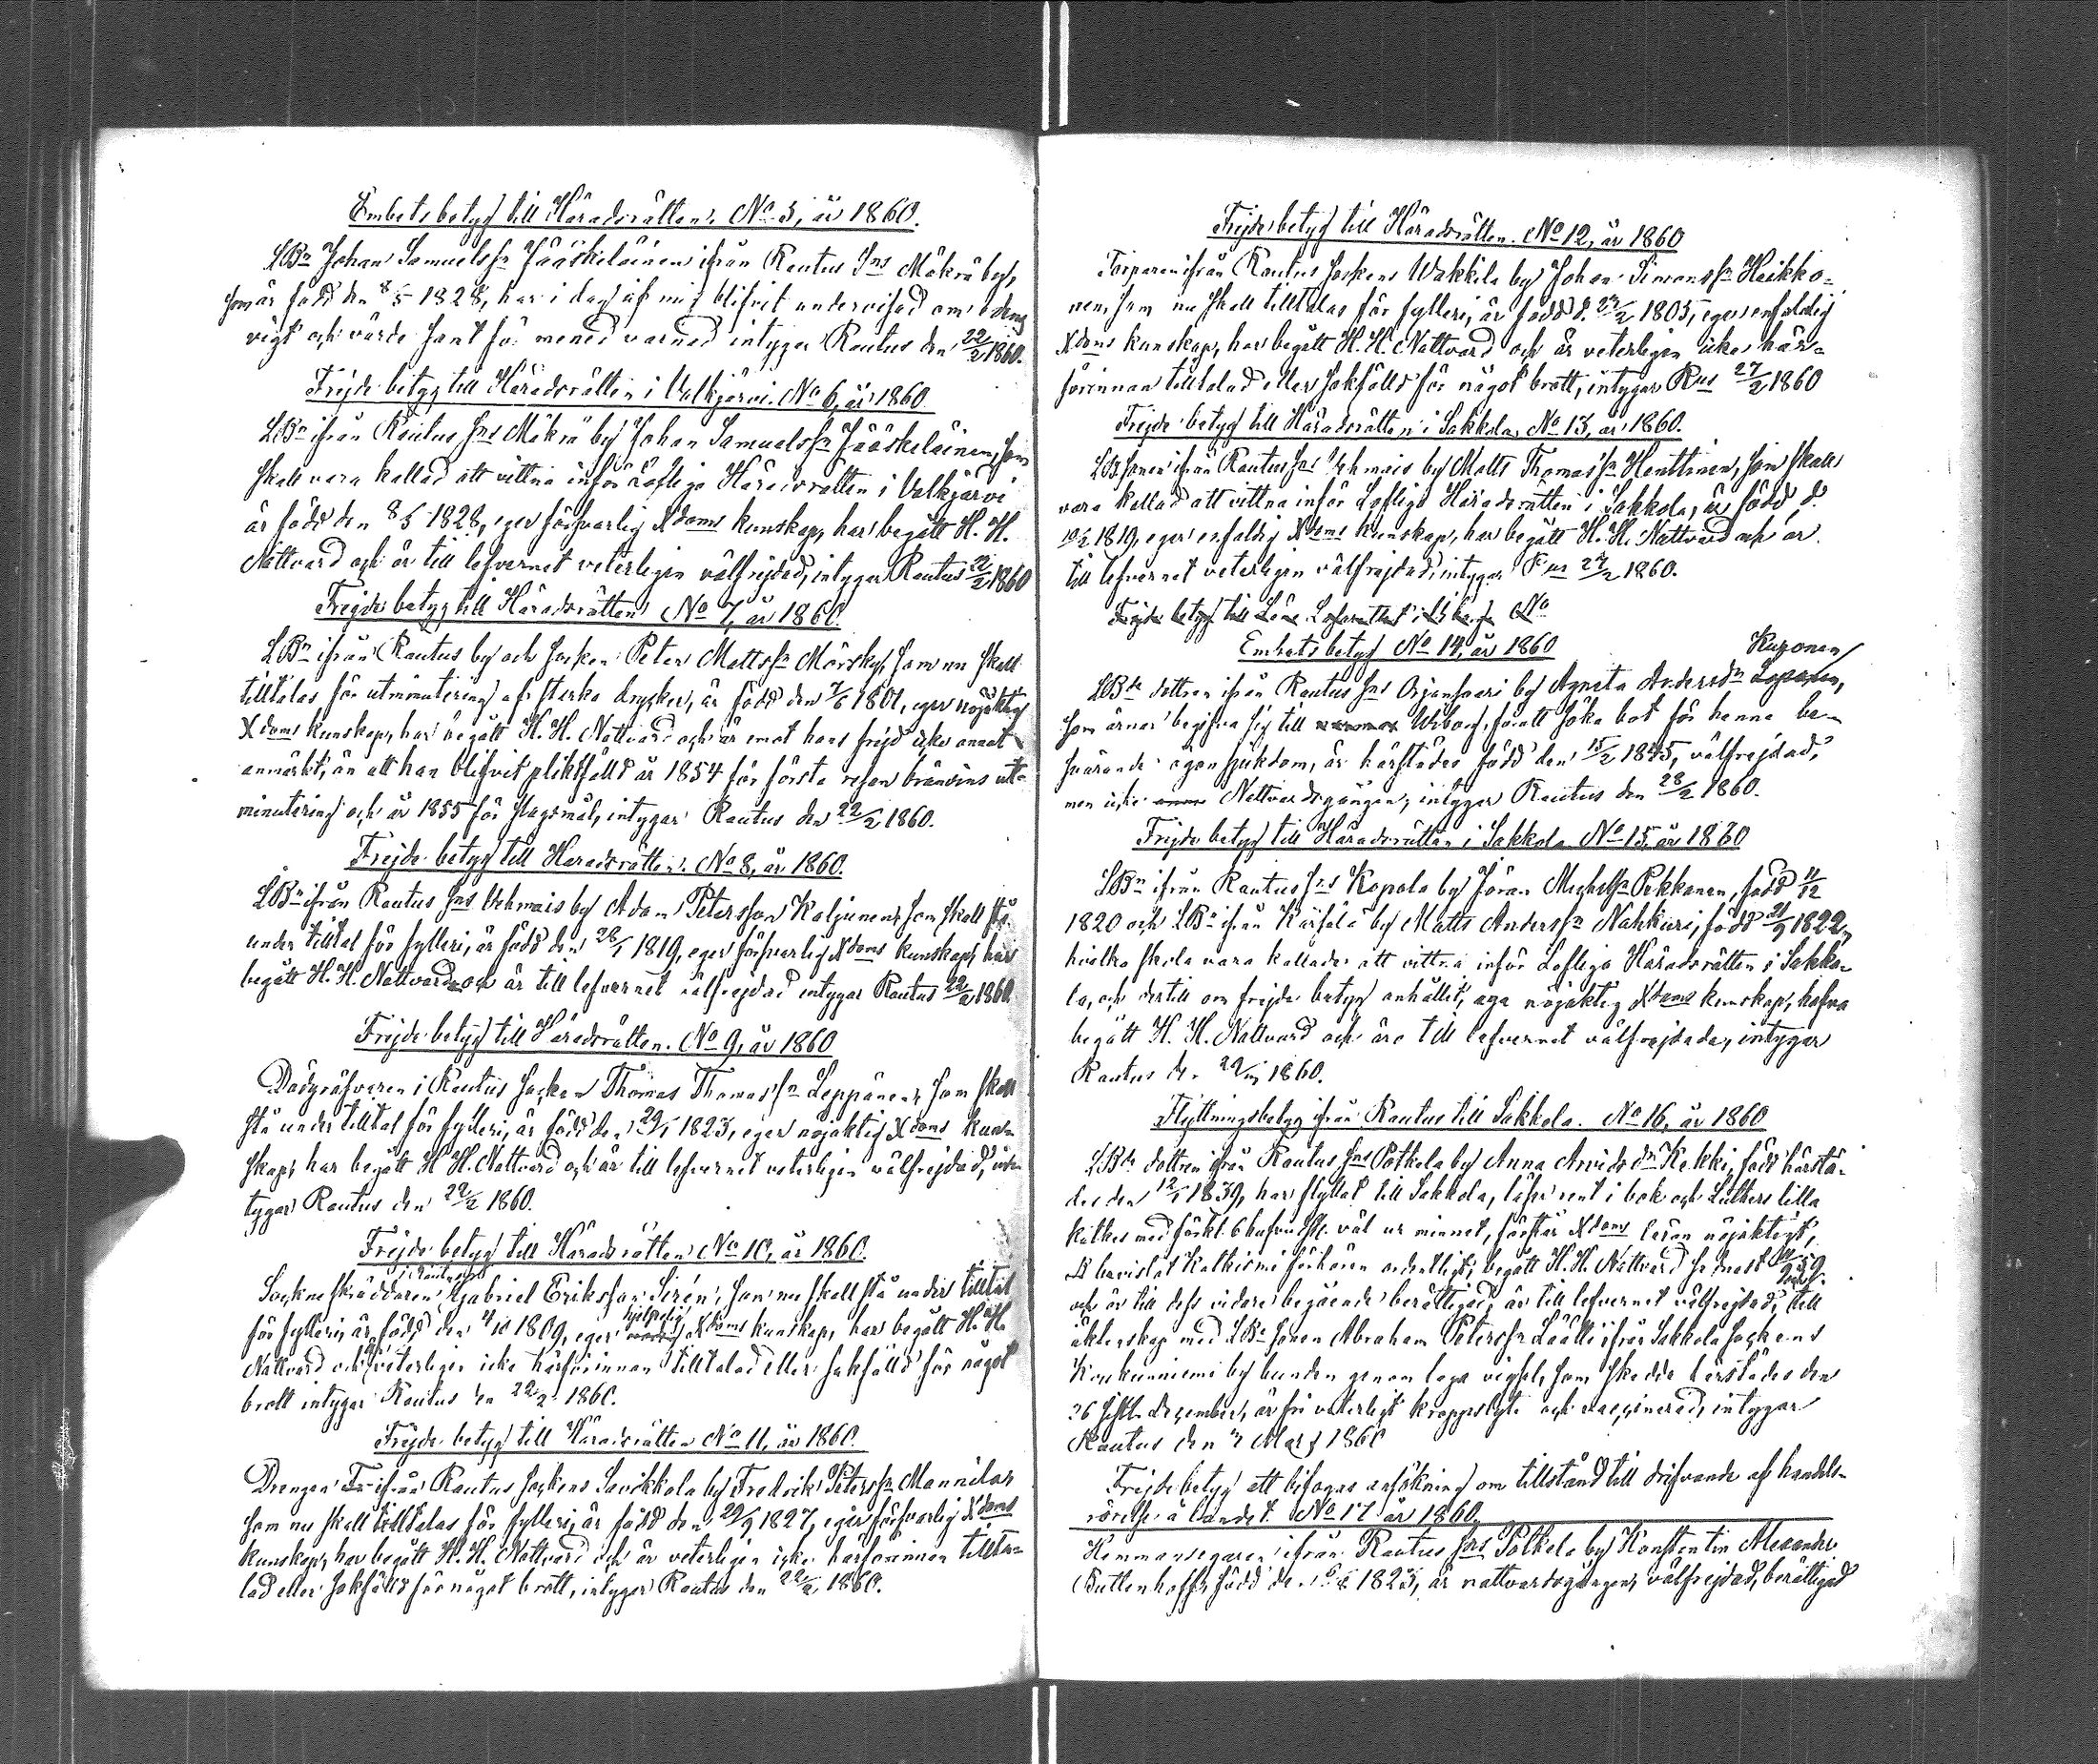 Embetsbetyg till Häradsrätten. No 5, år 1860.
LBn Johan Samuelsson Jääskeläinen ifrån Rautus Sns Mäkrä by,
som är född den 8/5 1828, har i dag af mig blifvit undervisad om edens
vigt och värde samt för mened varnad intygar Rautus den 22/2 1860.
Frejdebetyg till Häradsrätten i Valkjärvi. No 6, år 1860.
LBn ifrån Rautus Sns Mäkrä by Johan Samuelssn Jääskeläinen, som
skall vara kallad att vittna inför Lofliga Häradsrätten i Valkjärvi
är född den 8/5 1828, eger försvarlig Xdoms kunskap, har begått H. H.
Nattvard och är till lefvernet veterligen välfrejdad, intygar Rautus 22/2 1860
Frejdebetyg till Häradsrätten No 7, år 1860.
LBn ifrån Rautus by och socken Peter Mattssn Mörsky, som nu skall
tilltalas för utminutering af starka drycker, är född den 7/6 1801, eger nöjaktig
Xdoms kunskap, har begått H. H. Nattvard och är emot hans frejd icke annat
anmärkt, än att han blifvit pliktfälld år 1854 för första resan bränvins ut-
minutering och år 1855 för slagsmål, intygar Rautus den 22/2 1860.
Frejdebetyg till Häradsrätten. No 8, år 1860.
LBn ifrån Rautus Sns Vehmais by Adam Petersson Kaljunen, som skall stå
under tilltal för fylleri, är född den 28/1 1819, eger försvarlig Xdoms kunskap, har
begått H. H. Nattvard och är till lefvernet välfrejdad intygar Rautus 22/2 1860.
Frejdebetyg till Häradsrätten. No 9, år 1860
Dödgräfvaren i Rautus Socken Thomas Thomassn Leppänen, som skall
stå under tilltal för fylleri, är född den 29/1 1823, eger nöjaktig Xdoms kun-
skap, har begått H. H. Nattvard och är till lefvernet veterligen välfrejdad, in-
tygar Rautus den 22/2 1860.
Frejdebetyg till Häradsrätten No 10, år 1860.
Sockneskräddaren i Rautus Gabriel Eriksson Sirén, som nu skall stå under tilltal
för fylleri, är född den 4/10 1809, eger hjelpelig Xdoms kunskap, har begått H. H.
Nattvard och är veterligen icke härförinnan tilltalad eller sakfälld för något
brott intygar Rautus den 22/2 1860.
Frejdebetyg till Häradsrätten No 11, år 1860.
Drengen ifrån Rautus Sockens Savikkola by Fredrik Peterssn Mannilax
som nu skall tilltalas för fylleri, är född den 29/9 1827, eger försvarlig Xdoms
kunskap, har begått H. H. Nattvard och är veterligen icke härförinnan tillta-
lad eller sakfälld för något brott, intygar Rautus den 22/2 1860.
Frejdebetyg till Häradsrätten. No 12, år 1860
Torparen ifrån Rautus Sockens Wakkila by Johan Simonssn Heikko-
nen, som nu skall tilltalas för fylleri, är född d. 1805, eger enfaldig
Xdoms kunskap, har begått H. H. Nattvard och är veterligen icke här-
förinnan tilltalad eller sakfälld för något brott, intygar Rus 27/2 1860
Frejdebetyg till Häradsrätten i Sakkola, No 13, år 1860.
LBsonen ifrån Rautus Sns Vehmais by Matts Thomassn Henttinen, som skall
vara kallad att vittna inför Lofliga Häradsrätten i Sakkola, är född d.
1819, eger enfaldig Xdoms kunskap, har begått H. H. Nattvard och är
till lefvernet veterligen välfrejdad, intygar Rus 27/2 1860.
Frejdebetyg till No
Embetsbetyg No 14, år 1860
Kuzonen
LBde dottren ifrån Rautus Sns Orjansaari by Agneta Andersdn Loponen,
som ärnar begifva sig till Wiborg, för att söka bot för henne be-
svärande ögonsjukdom, är härstädes född den 15/2 1845, välfrejdad,
men icke Nattvardsgången, intygar Rautus den 28/2 1860.
Frejdebetyg till Häradsrätten i Sakkola No 15, år 1860
LBn ifrån Rautus Sns Kopola by Jöran Michelssn Pekkanen, född 11/12
1820 och LBn ifrån Kärsälä by Matts Anderssn Nahkuri, född 21/9 1822,
hvilka skola vara kallade att vittna inför Lofliga Häradsrätten i Sakko-
la, och dertill om frejdebetyg anhållit, äga nöjaktig Xdoms kunskap, hafva
begått H. H. Nattvard och äro till lefvernet välfrejdade, intygar
Rautus den 1860.
Flyttningsbetyg ifrån Rautus till Sakkola. No 16, år 1860
LBde dottren ifrån Rautus Sns Potkela by Anna Arvidsdn Kekki, född härstä-
des den 12/1 1839, har flyttat till Sakkola, läser rent i bok och Luthers lilla
katkes med förkl. 6 hufvudst. väl ur minnet, förstår Xdoms läran nöjaktigt,
bevistat Katkismi förhören ordentligt, begått H. H. Nattvard sednast 59
och är till dess vidare begående berättigad, är till lefvernet välfrejdad, till
äktenskap med LBde sonen Abraham Peterssn Läälli ifrån Sakkola Sockens
Konkunniemi by bunden genom laga vigsel, som skedde härstädes den
26 sistl. December, är fri veterligt kroppslyte och vaccinerad, intygar
Rautus den Mars 1860
Frejdebetyg att bifogas ansökning om tillstånd till drifvande af handels-
rörelse å landet. No 17 år 1860.
Hemmansegaren ifrån Rautus Sns Potkela by Konstantin Alexander
Buttenhoff, född den 1823, är nattvardsgången, välfrejdad, berättigad